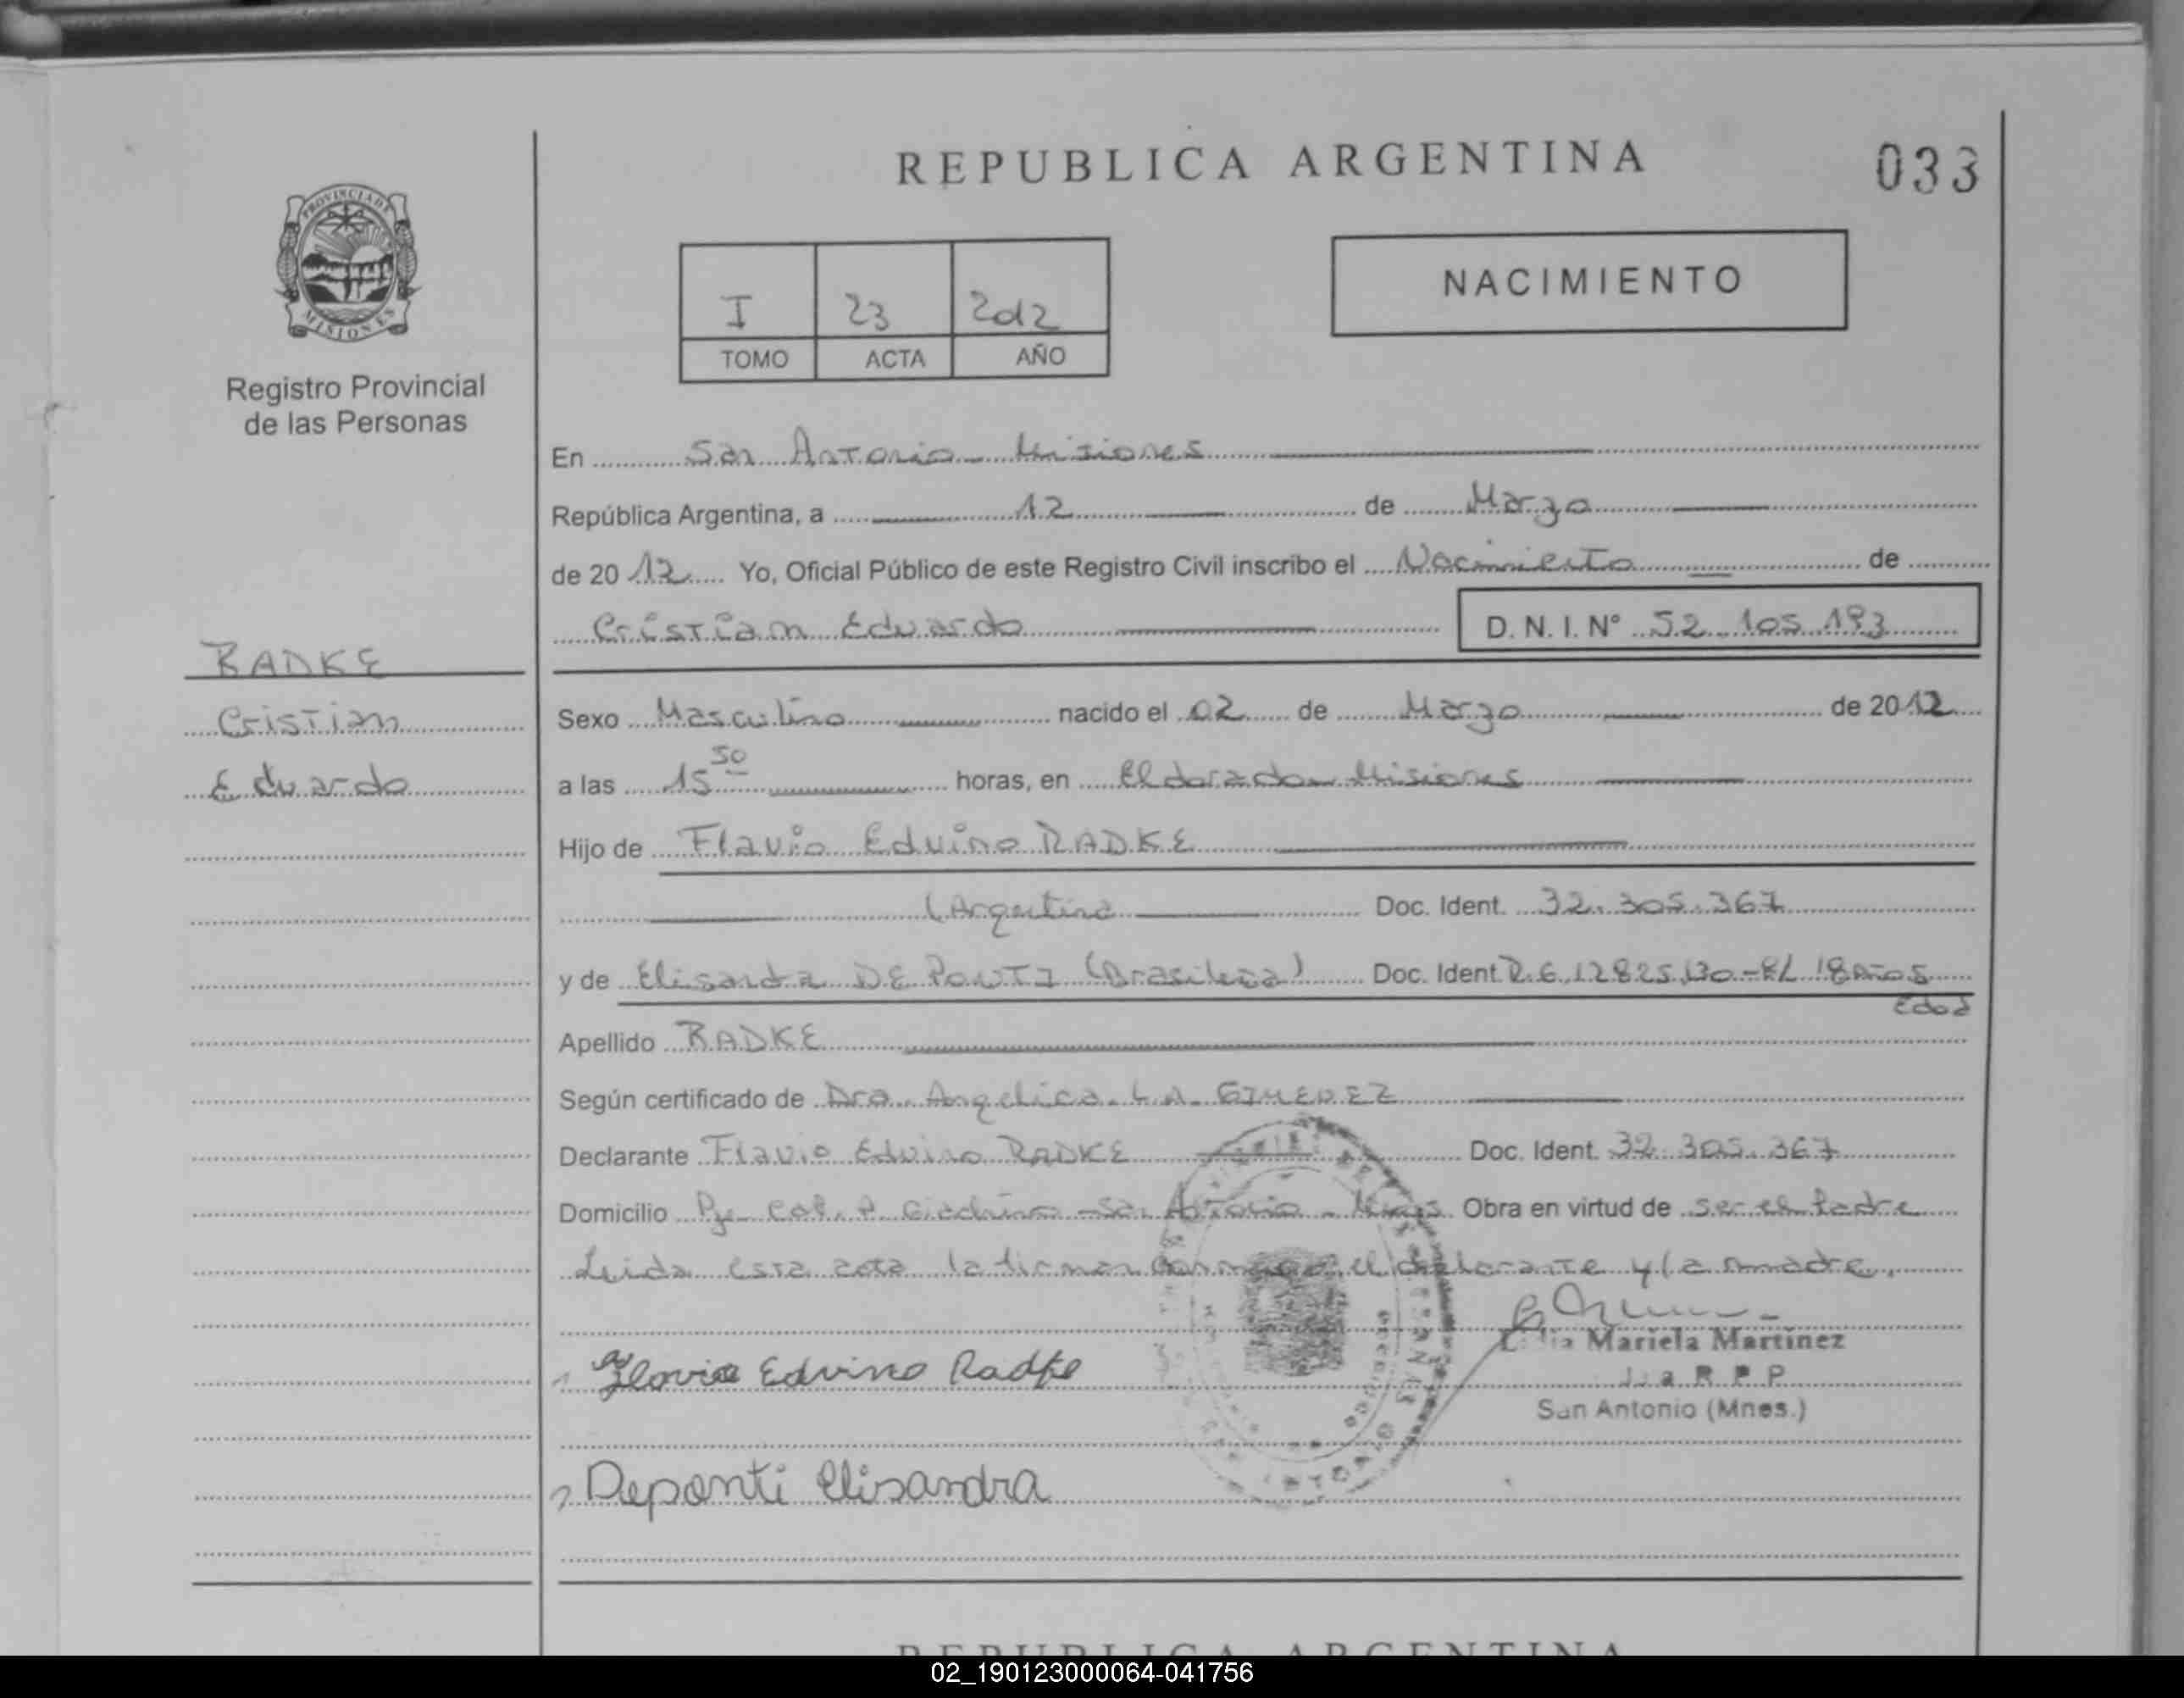 REPUBLICA ARGENTINA
033
PROVINCIA DE
MISIONES
Registro Provincial
de las Personas
I 23 2012
TOMO ACTA AÑO
NACIMIENTO
En San Antonio Misiones
República Argentina, a 12 de Marzo
de 2012 Yo, Oficial Público de este Registro Civil inscribo el Nacimiento de
Cristian Eduardo D.N.I. Nº 52.105.193
RADKE
Cristian
Eduardo
Sexo Masculino nacido el 02 de Marzo de 2012
a las 15 50 horas, en Eldorado Misiones
Hijo de Flavio Edvino RADKE
(Argentino Doc. Ident. 32.305.367
y de Elisandra DE PONTI (Brasilera) Doc. Ident R.G. 18 Años
Edad
Apellido RADKE
Según certificado de Dra. Angelica GIMENEZ
Declarante Flavio Edvino RADKE Doc. Ident. 32.305.367
Domicilio San Antonio - Mnes Obra en virtud de ser el Padre
Leida esta acta la firman el declarante y la madre.
Flavio Edvino Radke
Mariela Martinez
R P P
San Antonio (Mnes.)
Deponti Elisandra
REPUBLICA ARGENTINA
02_190123000064-041756